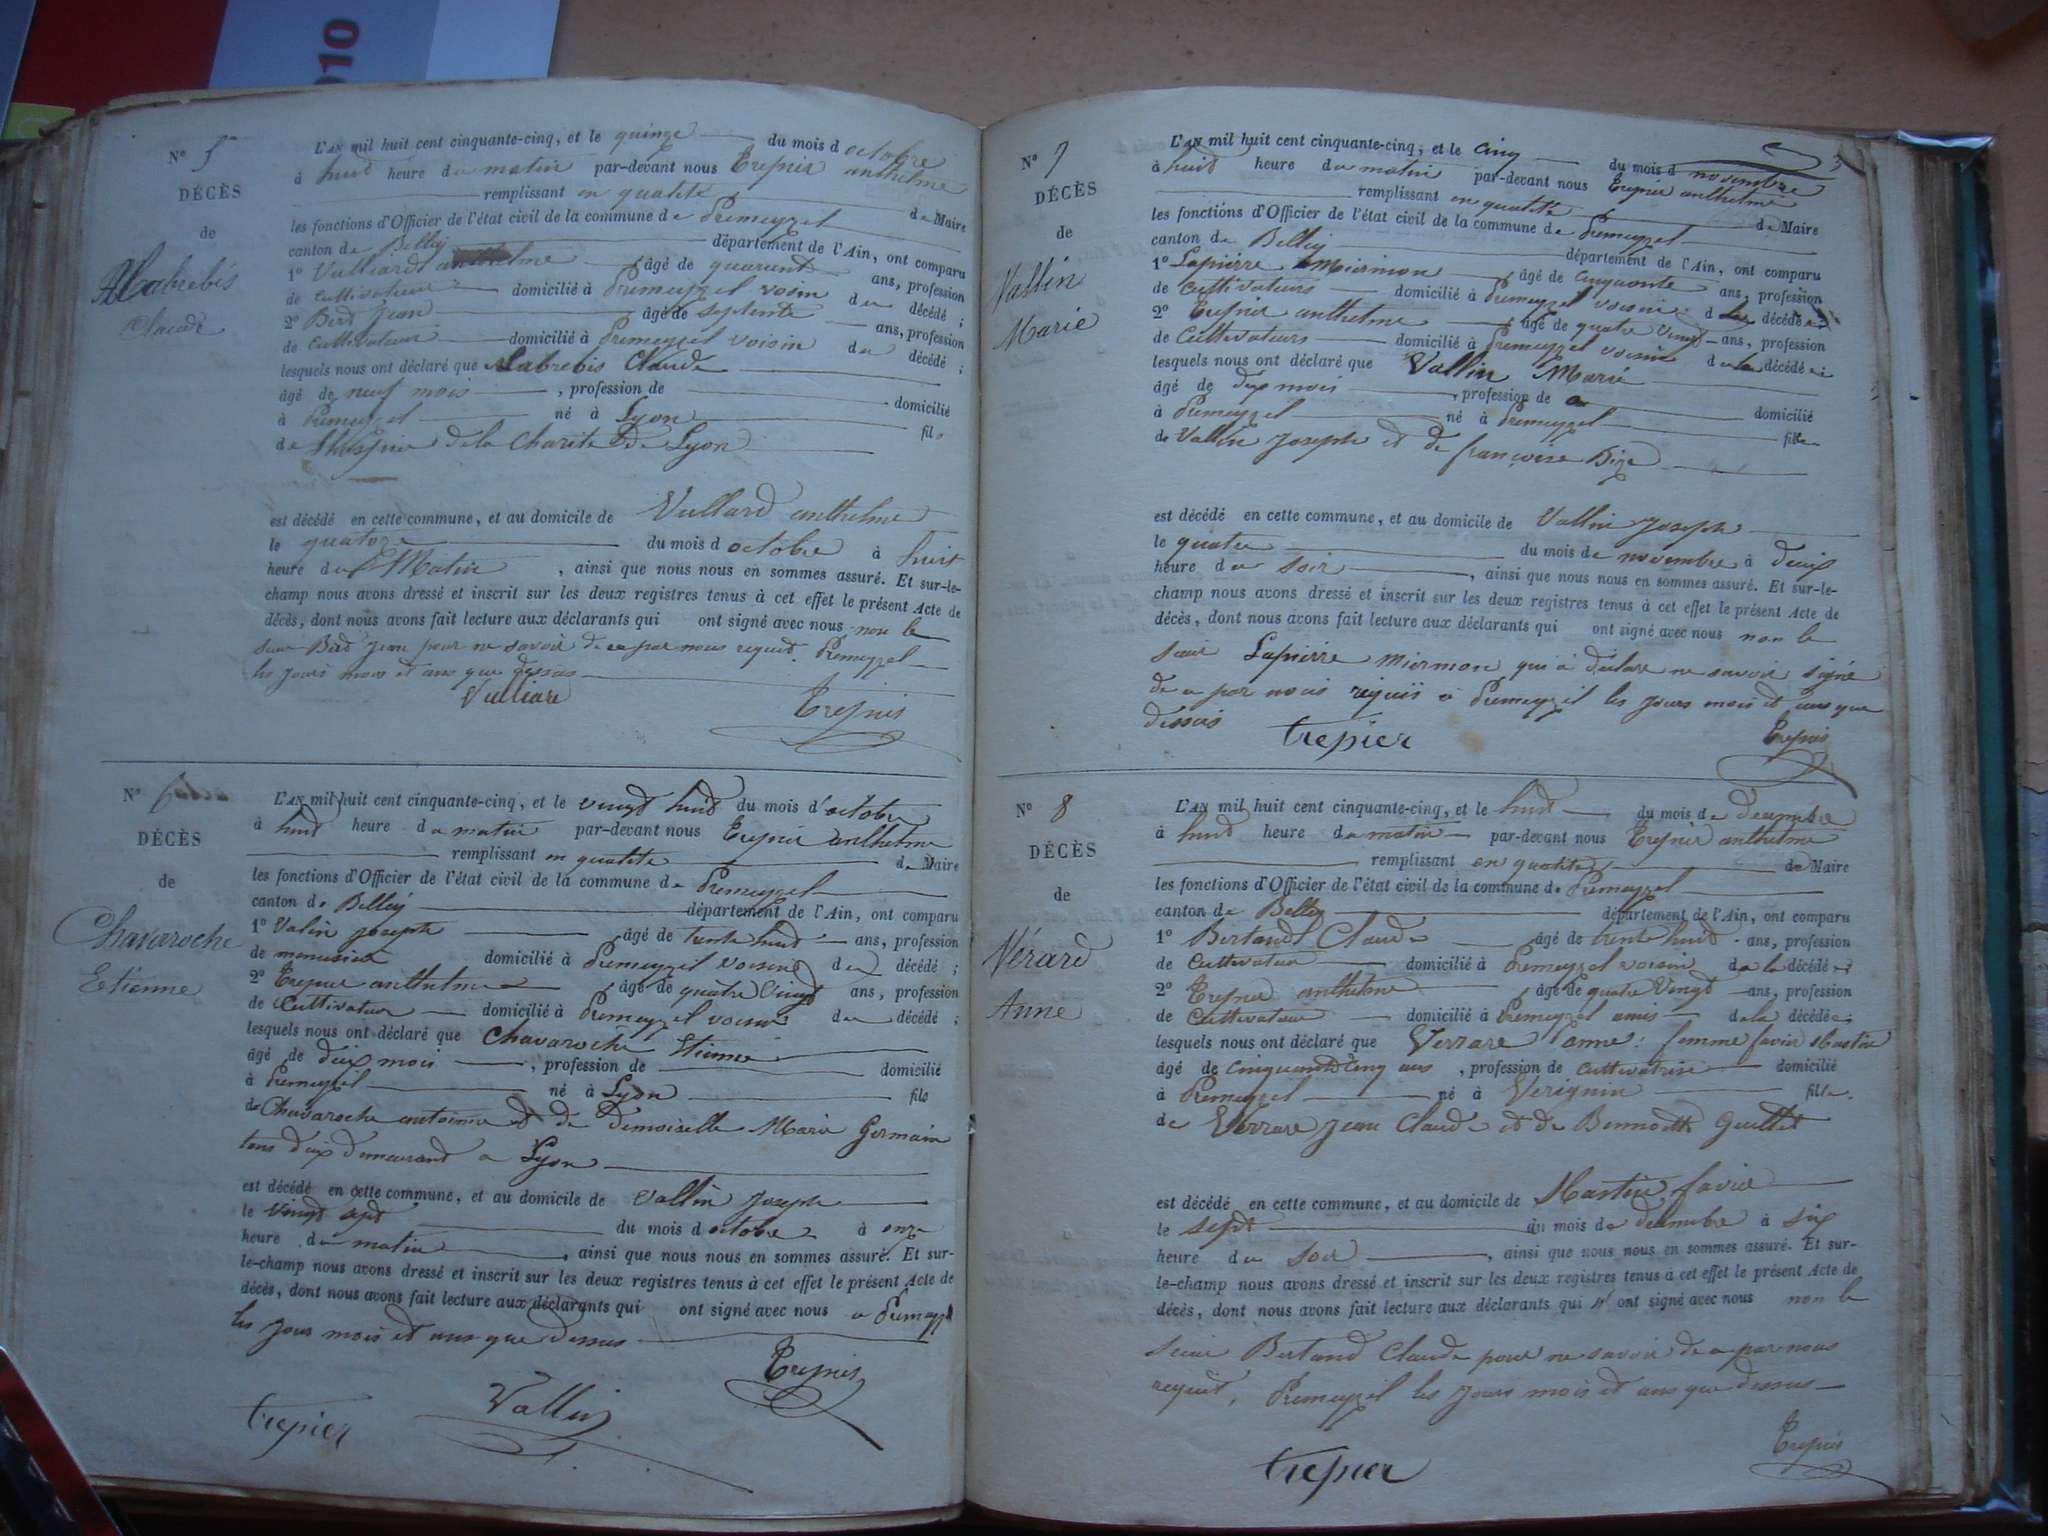 10
N° 5
DÉCÈS
de
Claude
L'AN mil huit cent cinquante-cinq, et le quinze du mois d octobre
à huid heure du matin par-devant nous Trepier anthelme
remplissant en qualité de Maire
les fonctions d'Officier de l'état civil de la commune de Premeyzel
canton de Belley département de l'Ain, ont comparu
1° Vulliard anthelme âgé de quarent ans, profession
de cultivateur domicilié à Premeyzel voisin du décédé ;
2° Bird jean âgé de septente ans, profession
de cultivateur domicilié à Premeyzel voisin du décédé ;
lesquels nous ont déclaré que Claude
âgé de neuf mois , profession de domicilié
à Premeyzel né à Lyon fils
de de la Charité de Lyon
est décédé en cette commune, et au domicile de Vullard anthelme
le quatorze du mois d octobre à huit
heure du Matin , ainsi que nous nous en sommes assuré. Et sur-le-
champ nous avons dressé et inscrit sur les deux registres tenus à cet effet le présent Acte de
décès, dont nous avons fait lecture aux déclarants qui ont signé avec nous non le
sieur Bird jean pour ne savoir de ce par nous requid. Premeyzel
les jours mois et ans que dessus
Vulliard
Trepier
N° 6
DÉCÈS
de
Chavaroche
Etienne
L'AN mil huit cent cinquante-cinq, et le vingt huid du mois d'octobre
à huid heure du matin par-devant nous Trepier anthelme
remplissant en qualité de Maire
les fonctions d'Officier de l'état civil de la commune de Premeyzel
canton de Belley département de l'Ain, ont comparu
1° Valin joseph âgé de trente huid ans, profession
de menusier domicilié à Premeyzel voisin du décédé ;
2° Trepier anthelme âgé de quatre Vingt ans, profession
de Cultivateur domicilié à Premeyzel voisin du décédé ;
lesquels nous ont déclaré que Chavaroche Etienne
âgé de deux mois , profession de domicilié
à Premeyzel né à Lyon fils
de Chavaroche antoine et de Demoiselle Marie Germain
tous deux demeurand a Lyon
est décédé en cette commune, et au domicile de Vallin joseph
le vingt sept du mois d octobre à onze
heure du matin , ainsi que nous nous en sommes assuré. Et sur-
le-champ nous avons dressé et inscrit sur les deux registres tenus à cet effet le présent Acte de
décès, dont nous avons fait lecture aux déclarants qui ont signé avec nous a Premeyzel
les jours mois et ans que dessus
Trepier
trepier
Vallin
N° 7
DÉCÈS
de
Vallin
Marie
L'AN mil huit cent cinquante-cinq, et le cinq du mois d novembre
à huid heure du matin par-devant nous Trepier anthelme
remplissant en qualité de Maire
les fonctions d'Officier de l'état civil de la commune de Premeyzel
canton de Belley département de l'Ain, ont comparu
1° Lapierre Miermon âgé de cinquante ans, profession
de Cultivateurs domicilié à Premeyzel voisin de la décédée
2° Trepier anthelme âgé de quatre vingt ans, profession
de Cultivateurs domicilié à Premeyzel voisin de la décédée
lesquels nous ont déclaré que Vallin Marie
âgé de dix mois , profession de domicilié
à Premeyzel né à Premeyzel fille
de Vallin joseph et de françoise Bize
est décédé en cette commune, et au domicile de Vallin joseph
le quatre du mois de novembre à deux
heure du soir , ainsi que nous nous en sommes assuré. Et sur-le-
champ nous avons dressé et inscrit sur les deux registres tenus à cet effet le présent Acte de
décès, dont nous avons fait lecture aux déclarants qui ont signé avec nous non le
sieur Lapierre Miermon qui a déclare ne savoir signé
de ce par nous requis a Premeyzel les jours mois et ans que
dessus
trepier
Trepier
N° 8
DÉCÈS
de
Vérard
Anne
L'AN mil huit cent cinquante-cinq, et le huid du mois de decembre
à huid heure du matin par-devant nous Trepier anthelme
remplissant en qualité de Maire
les fonctions d'Officier de l'état civil de la commune de Premeyzel
canton de Belley département de l'Ain, ont comparu
1° Bertand Claude âgé de trente huid ans, profession
de Cultivateur domicilié à Premeyzel voisin de la décédée
2° Trepier anthelme âgé de quatre Vingt ans, profession
de Cultivateur domicilié à Premeyzel amis de la décédée
lesquels nous ont déclaré que Verrare anne femme favier Martin
âgé de cinquante cinq ans , profession de cultivatrise domicilié
à Premeyzel né à Verignin fille
de Verrare jean Claude et de Bennoitte Guillet
est décédé en cette commune, et au domicile de Martin favier
le sept du mois de decembre à six
heure du soir , ainsi que nous nous en sommes assuré. Et sur-
le-champ nous avons dressé et inscrit sur les deux registres tenus à cet effet le présent Acte de
décès, dont nous avons fait lecture aux déclarants qui ont signé avec nous non le
sieur Bertand Claude pour ne savoir de ce par nous
requit, Premeyzel les jours mois et ans que dessus
Trepier
trepier